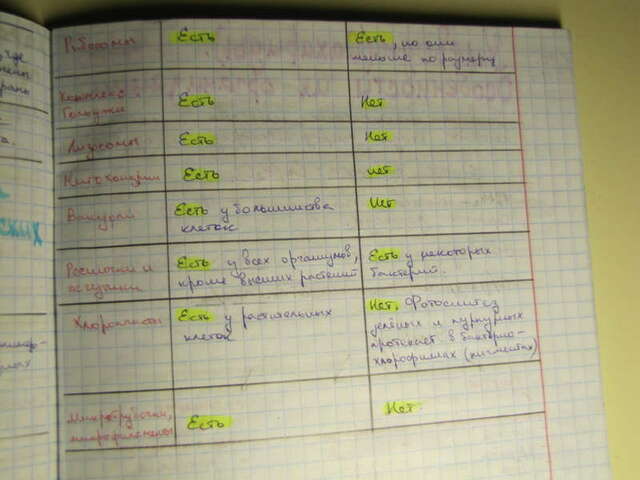 Рибосомы
Есть
Есть, но они
меньше по размеру
Комплекс
Гольджи
Есть
Нет
Лизосомы
Есть
Нет
Митохондрии
Есть
нет
Вакуоли
Есть у большинства
клеток
Нет
Реснички и
жгутики
Есть у всех организмов,
кроме высших растений
Есть у некоторых
бактерий.
Хлоропласты
Есть у растительных
клеток
Нет. Фотосинтез
зелёных и пурпурных
протекает в бактерио-
хлорофиллах (пигментах)
Микротрубочки,
микрофиламенты
Есть
Нет